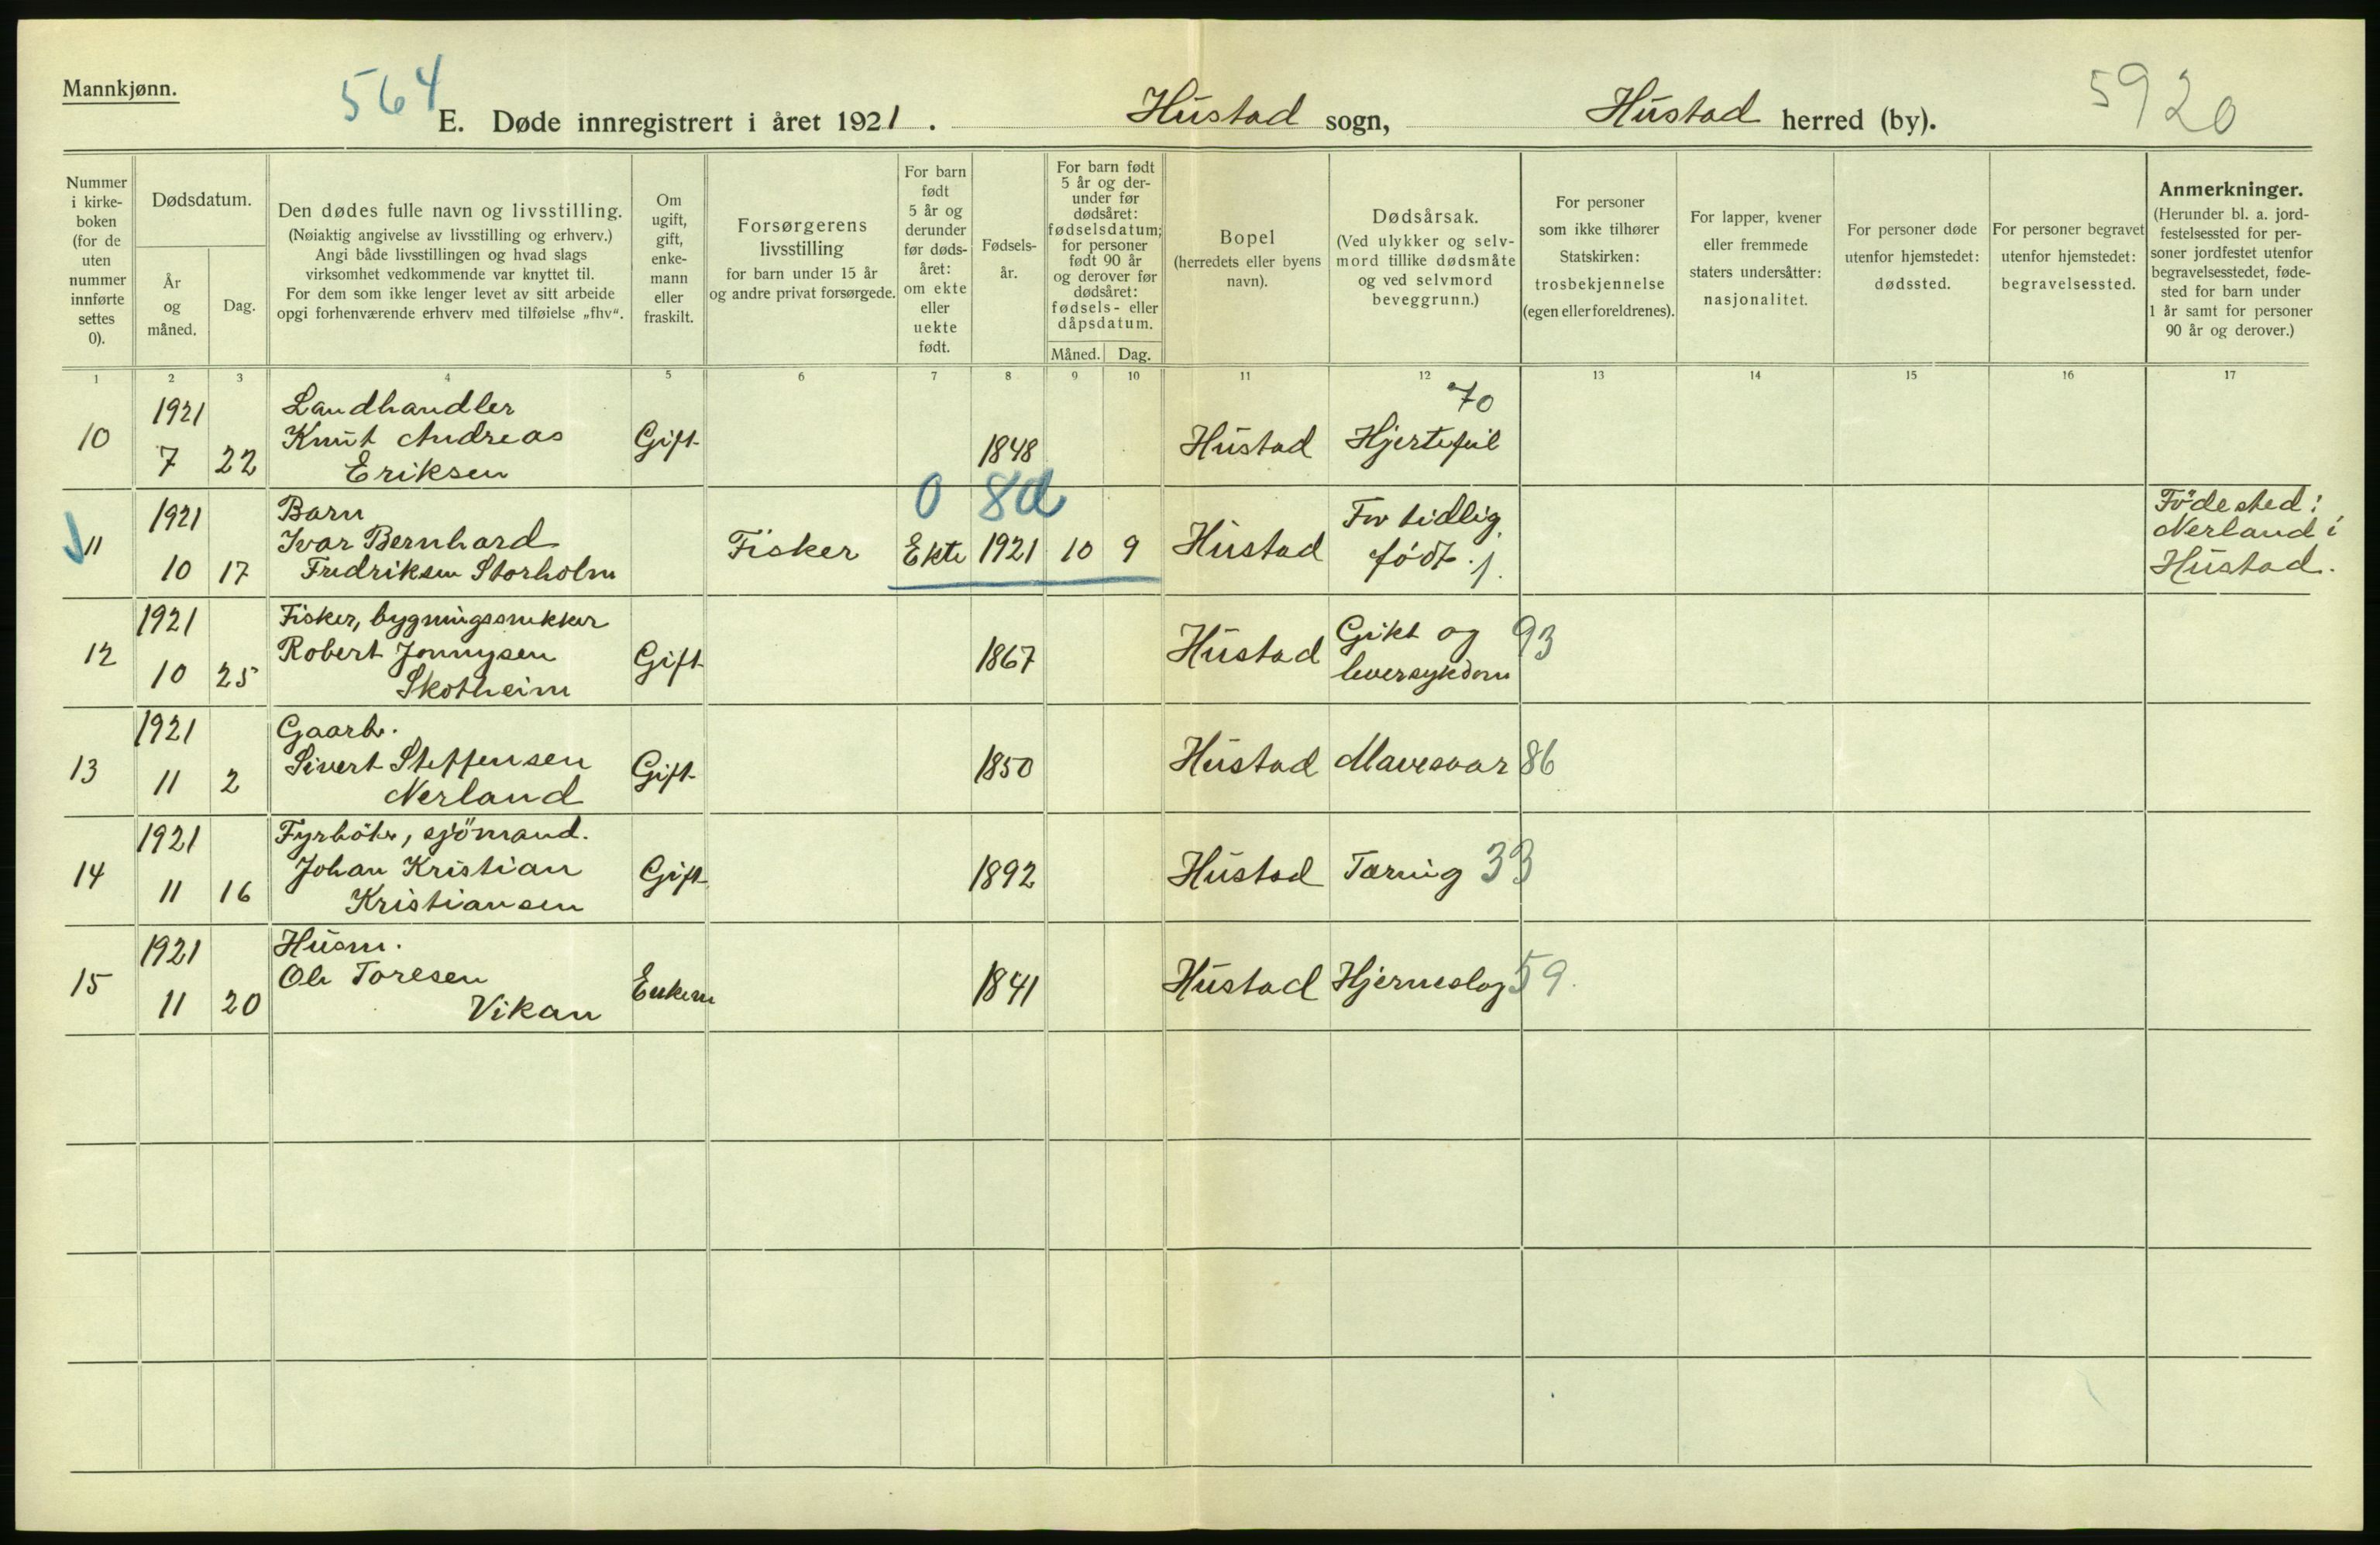 Mannkjønn.
564
E. Døde innregistrert i året 1921. Hustad sogn, Hustad herred (by).
5920
Nummer
i kirke-
boken
(for de
uten
nummer
innførte
settes
0).
Dødsdatum.
År
og
måned.
Dag.
Den dødes fulle navn og livsstilling.
(Nøiaktig angivelse av livsstilling og erhverv.)
Angi både livsstillingen og hvad slags
virksomhet vedkommende var knyttet til.
For dem som ikke lenger levet av sitt arbeide
opgi forhenværende erhverv med tilføielse „fhv“.
Om
ugift,
gift,
enke-
mann
eller
fraskilt.
Forsørgerens
livsstilling
for barn under 15 år
og andre privat forsørgede.
For barn
født
5 år og
derunder
før døds-
året:
om ekte
eller
uekte
født.
Fødsels-
år.
For barn født
5 år og der-
under før
dødsåret:
fødselsdatum;
for personer
født 90 år
og derover før
dødsåret:
fødsels- eller
dåpsdatum.
Måned. Dag.
Bopel
(herredets eller byens
navn).
Dødsårsak.
(Ved ulykker og selv-
mord tillike dødsmåte
og ved selvmord
beveggrunn.)
For personer
som ikke tilhører
Statskirken:
trosbekjennelse
(egen eller foreldrenes).
For lapper, kvener
eller fremmede
staters undersåtter:
nasjonalitet.
For personer døde
utenfor hjemstedet:
dødssted.
For personer begravet
utenfor hjemstedet:
begravelsessted.
Anmerkninger.
(Herunder bl. a. jord-
festelsessted for per-
soner jordfestet utenfor
begravelsesstedet, føde-
sted for barn under
1 år samt for personer
90 år og derover.)
1 2 3 4 5 6 7 8 9 10 11 12 13 14 15 16 17
70
1921 Landhandler
10 Knut Andreas Gift 1848 Hustad Hjertefeil
7 22 Eriksen
0 8d
1921 Barn For tidlig Födested:
11 Ivar Bernhard Fisker Ekte 1921 10 9 Hustad født. 1. Nerland i
10 17 Fredriksen Storholm Hustad.
1921 Fisker, bygningssnekker Gikt og 93
12 Robert Jonnysen Gift 1867 Hustad leversykdom
10 25 Skotheim
1921 Gaarbr.
13 Sivert Steffensen Gift 1850 Hustad Mavesaar 86
11 2 Nerland
1921 Fyrböter, sjömand.
14 Johan Kristian Gift 1892 Hustad Tæring 33
11 16 Kristiansen
1921 Husm.
15 Ole Toresen Enkem 1841 Hustad Hjerneslag 59.
11 20 Vikan